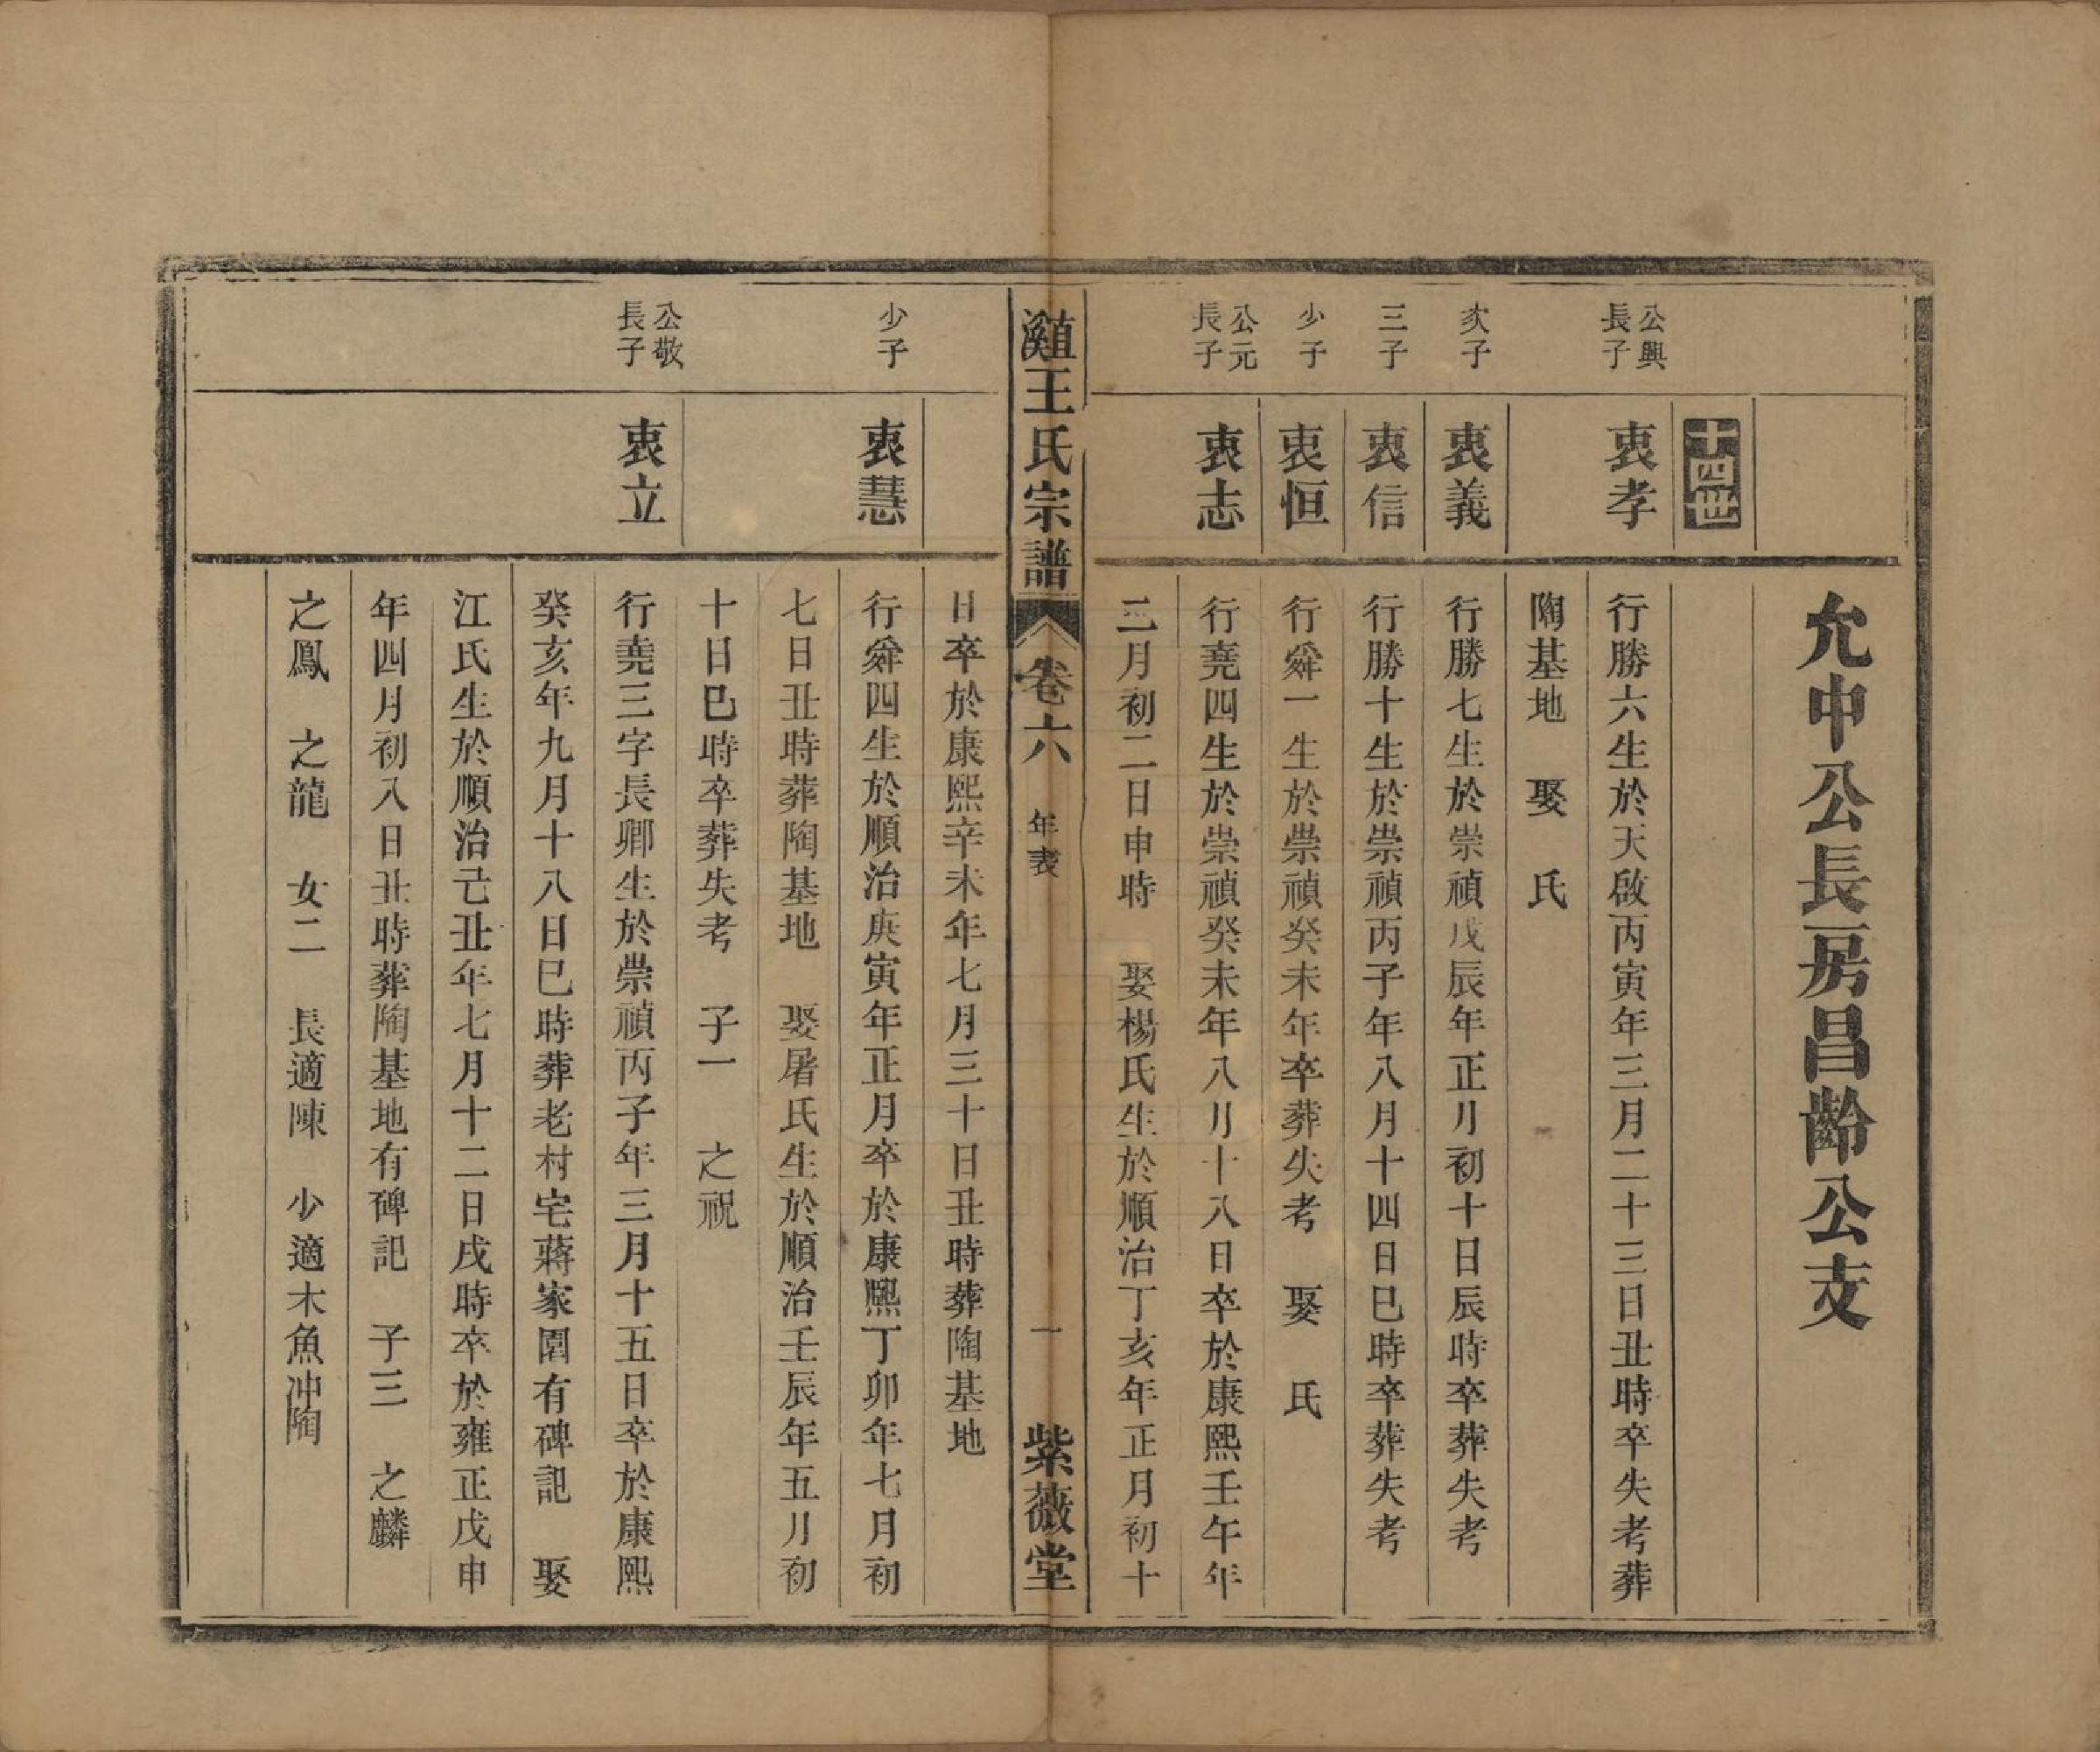 允中公長房昌齡公支
十四世
公興
長子
衷孝
行勝六生於天啟丙寅年三月二十三日丑時卒失考葬
陶基地　娶　氏
次子
衷義
行勝七生於崇禎戊辰年正月初十日辰時卒葬失考
三子
衷信
行勝十生於崇禎丙子年八月十四日巳時卒葬失考
少子
衷恒
行舜一生於崇禎癸未年卒葬失考　娶　氏
公元
長子
衷志
行堯四生於崇禎癸未年八月十八日卒於康熙壬午年
三月初二日申時　娶楊氏生於順治丁亥年正月初十
王氏宗譜
卷六
年表
一
紫薇堂
日卒於康熙辛未年七月三十日丑時葬陶基地
少子
衷慧
行舜四生於順治庚寅年正月卒於康熙丁卯年七月初
七日丑時葬陶基地　娶屠氏生於順治壬辰年五月初
十日巳時卒葬失考　子一　之祝
公敬
長子
衷立
行堯三字長卿生於崇禎丙子年三月十五日卒於康熙
癸亥年九月十八日巳時葬老村宅蔣家園有碑記　娶
江氏生於順治己丑年七月十二日戌時卒於雍正戊申
年四月初八日丑時葬陶基地有碑記　子三　之麟
之鳳　之龍　女二　長適陳　少適木魚冲陶